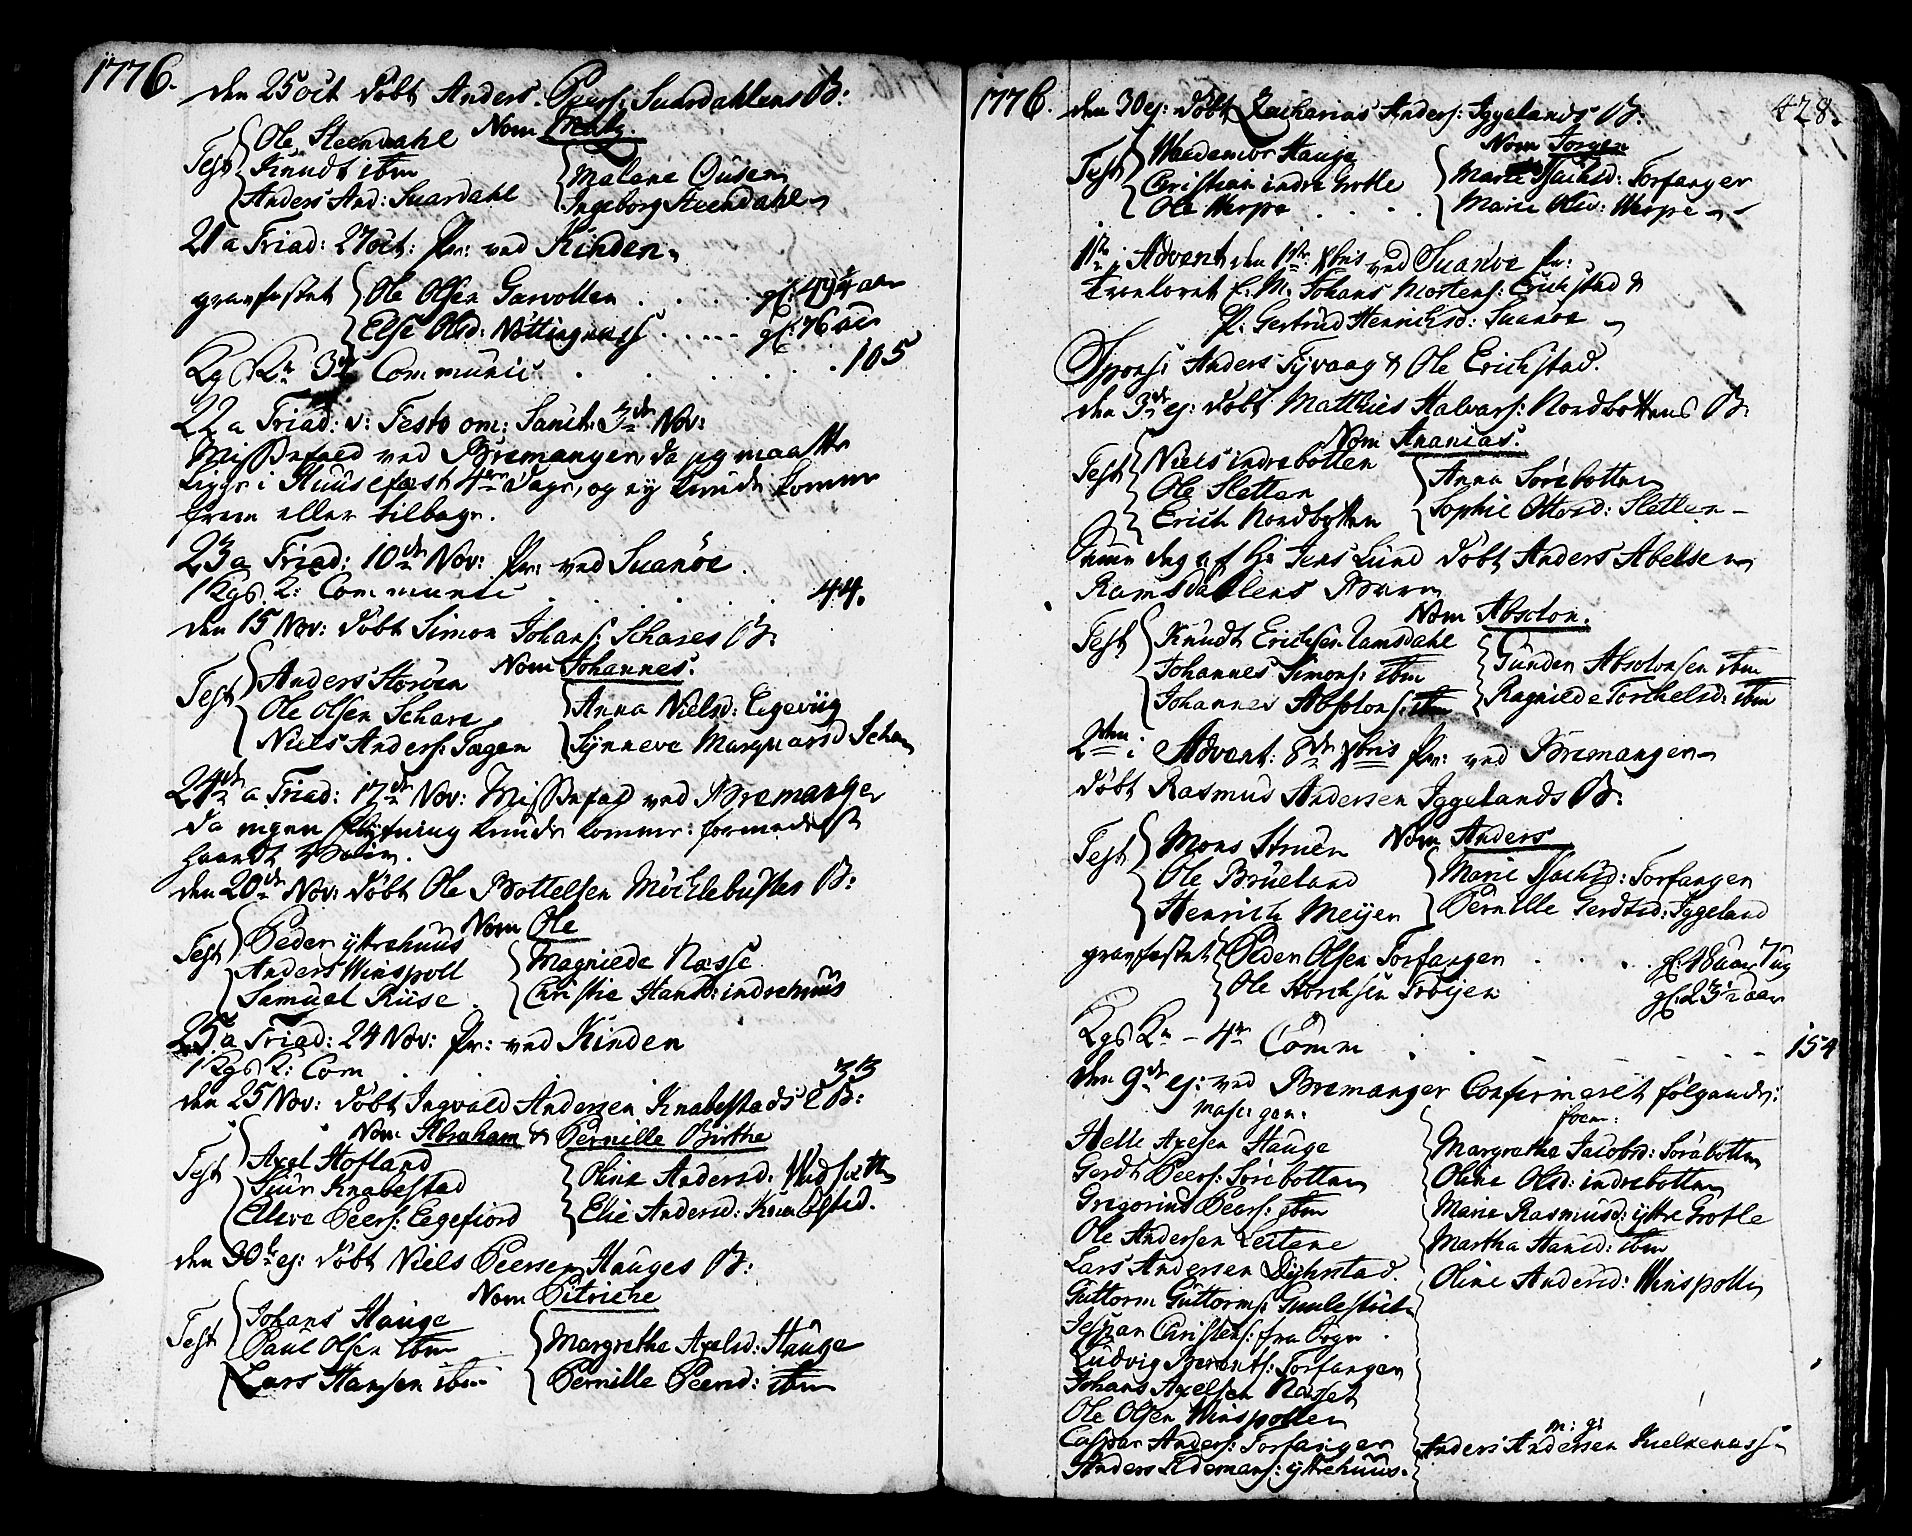 1776.
den 25 oct döbt Anders Peers: Suardahlens B:
Nom Matz.
Test Ole Steendahl
Knudt ibm
Anders And: Suardahl
Malene Ousen
Ingeborg Steendahl
21 a Triad: 27 oct: Pr: ved Kinden
gravfæstet Ole Olsen Garvolten . . . . gl: 49¼ aar
Else Olsd: Nöttingness . . . . gl: 76 aar
Kgs K: 3de Communic . . . . . 105
22 a Triad: v: Festo om: Sanct: 3de Nov:
Missefald ved Bremanger, da jeg maatte
ligge i Huusefast 4re dage, og ey kunde komme
frem eller tilbage.
23 a Triad: 10de Nov: Pr: ved Suanöe.
1 Kgs K: Communic . . . . . 44.
den 15 Nov: döbt Simon Johans: Schares B:
Nom Johannes.
Test Anders Storöen
Ole Olsen Schare
Niels Anders: Tagen
Anna Nielsd: Egeviig
Synneve Marquarsd Schare
24de a Triad: 17de Nov: Missefald ved Bremanger
da ingen flytning kunde komme: formedelst
haardt Veir.
den 20de Nov: döbt Ole Bottelsen Möcklebustes B:
Nom Ole
Test Peder yttrehuus
Anders Winspoll
Samuel Riise
Magniede Næsse
Christie Hansd: indrehuus
25 a Triad: 24 Nov: Pr: ved Kinden
1 Kgs K: Com . . . 33
den 25 Nov: döbt Ingvald Andersen Knabestads 2 B:
Nom Abraham & Pernille Birthe
Test Axel Hofland
Siur Knabestad
Elleve Peers: Eegefiord
Oline Andersd: Widsætte
Elie Andersd: Knabestad.
den 30te ej: döbt Niels Peersen Hauges B:
Nom Pitriche
Test Johans Hauge
Paul Olsen ibm
Lars Hansen ibm
Margrethe Axelsd: Hauge
Pernille Peersd: ibm
1776. 428.
den 30 ej: döbt Zacharias Anders: Iggelands B:
Nom Jörgen
Test Waldemor Hauge
Christian indre Grotle
Ole Werpe . . . .
Marie Isachsd: Torfanger
Marie Olsd: Werpe
1te i Advent den 1ste Xbris ved Suanöe Pr:
troloret E: M: Johans Mortens: Erichstad &
P: Gertrud Henrichsd: Suanöe
Sponsi Anders Tyvaag & Ole Erichstad.
den 3de ej: döbt Matthies Halvars: Nordbottens B:
Nom Ananias.
Test Niels indrebotten
Ole Sletten
Erich Nordbotten
Anna Sörebotten
Sophie Ottosd: Sletten
Samme dag af Hr Jens Lund döbt Anders Abelsen
Ramsdahlens Barn
Nom Absolon.
Test Knudt Erichsen Ramsdahl
Johannes Simons: ibm
Johannes Absolons: ibm
Gunder Absolonsen ibm
Ragniede Torchelsd: ibm
2den i Advent: 8de Xbris Pr: ved Bremanger
döbt Rasmus Andersen Iggelands B:
Nom Anders
Test Mons Struen
Ole Brueland
Henrich Meijer
Marie Isachsd: Torfanger
Pernille Gerdtsd: Iggeland
gravfæstet Peder Olsen Torfanger . . . gl: 18 aar 7 ug
Ole Storchsen Tobijen gl: 23½ aar
Kgs K: - 4de Comm . . . . 154
den 9de ej: ved Bremanger Confirmeret fölgende:
masc: gen: foem:
Helle Axelsen Hauge
Gerdt Peers: Sörebotten
Gregorius Peers: ibm
Ole Andersen Leitene
Lars Andersen Dyhrstad.
Guttorm Guttorms: Gulestad
Jespar Christens: fra Sogn .
Ludvig Berents: Torfanger
Johans Axelsen Næsset
Ole Olsen Winspollen
Caspar Anders: Torfanger
Anders Eldemans: yttrehuus.
Margrethe Jacobsd: Sörebotten
Oline Olsd: indrebotten
Marie Rasmusd: yttre Grotle
Martha Hansd: ibm
Oline Andersd: Winspolle
m: g:
Anders Andersen Kuelneness